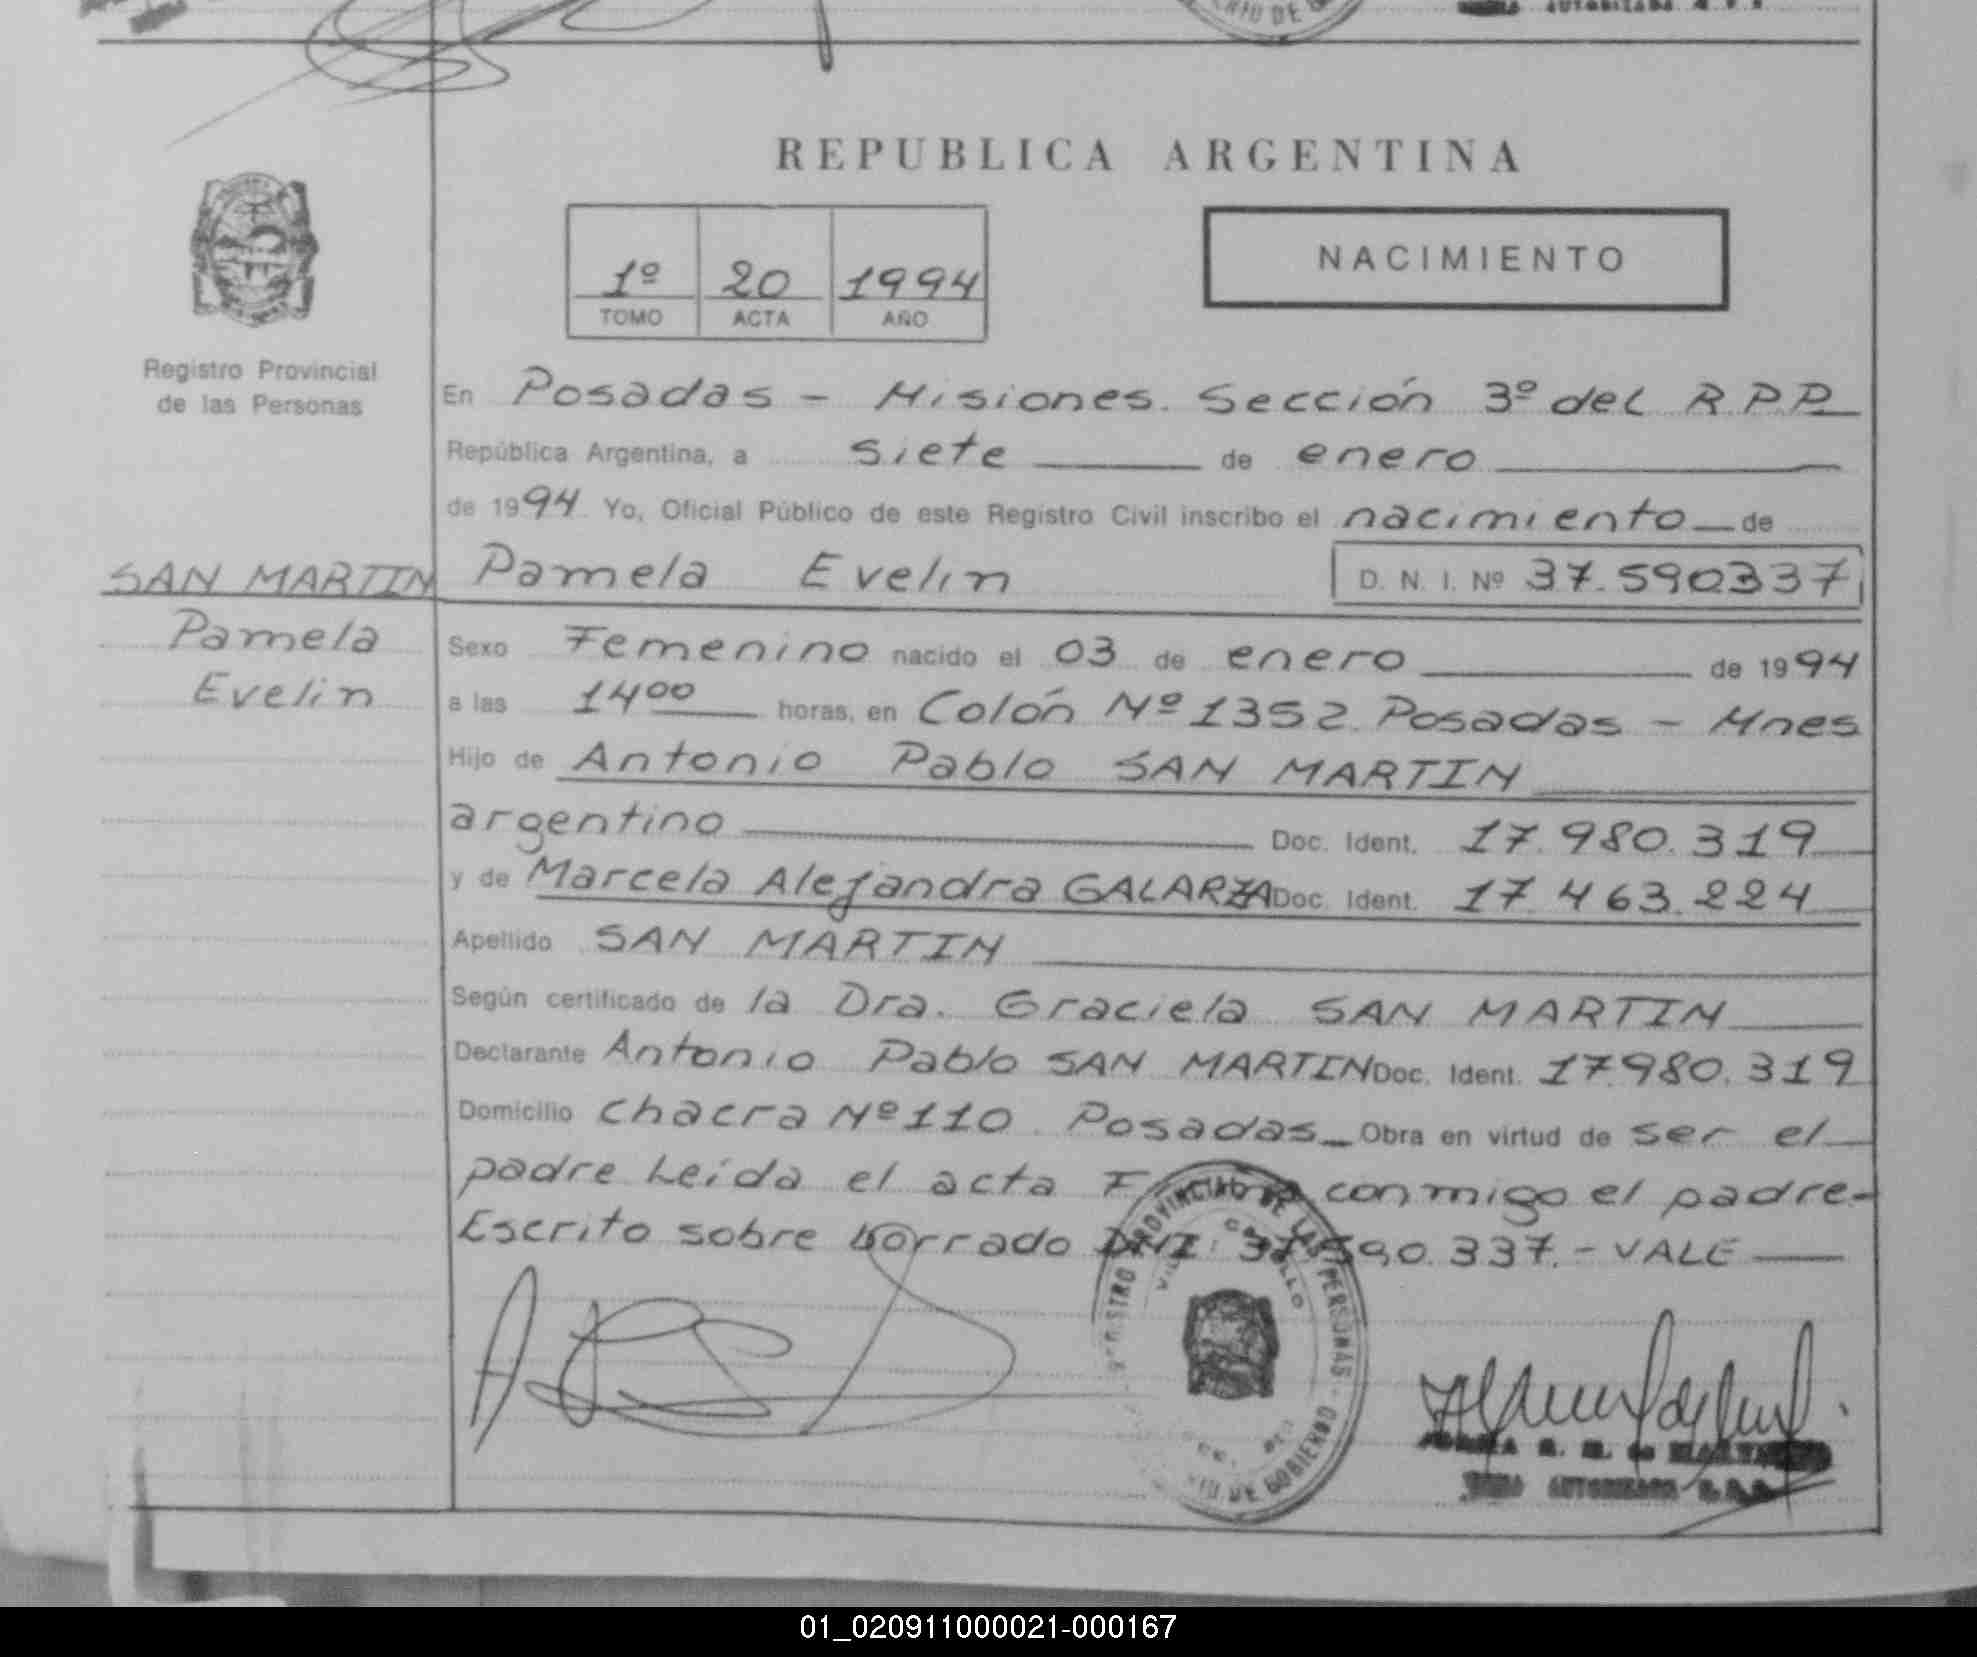 REPUBLICA ARGENTINA
NACIMIENTO
1º 20 1994
TOMO ACTA AÑO
Registro Provincial
de las Personas
En Posadas - Misiones. Sección 3º del R.P.P.
República Argentina, a siete de enero
de 1994. Yo, Oficial Público de este Registro Civil inscribo el nacimiento de
SAN MARTIN
Pamela
Evelin
Pamela Evelin D. N. I. Nº 37.590337
Sexo Femenino nacido el 03 de enero de 1994
a las 14⁰⁰ horas, en Colón Nº 1352. Posadas - Mnes
Hijo de Antonio Pablo SAN MARTIN
argentino Doc. Ident. 17.980.319
y de Marcela Alejandra GALARZA Doc. Ident. 17.463.224
Apellido SAN MARTIN
Según certificado de la Dra. Graciela SAN MARTIN
Declarante Antonio Pablo SAN MARTIN Doc. Ident. 17.980.319
Domicilio Chacra Nº 110. Posadas_ Obra en virtud de ser el
padre Leída el acta conmigo el padre-
Escrito sobre borrado DNI: 37.590.337.- VALE
REGISTRO PROVINCIAL DE LAS PERSONAS
DE GOBIERNO
01_020911000021-000167